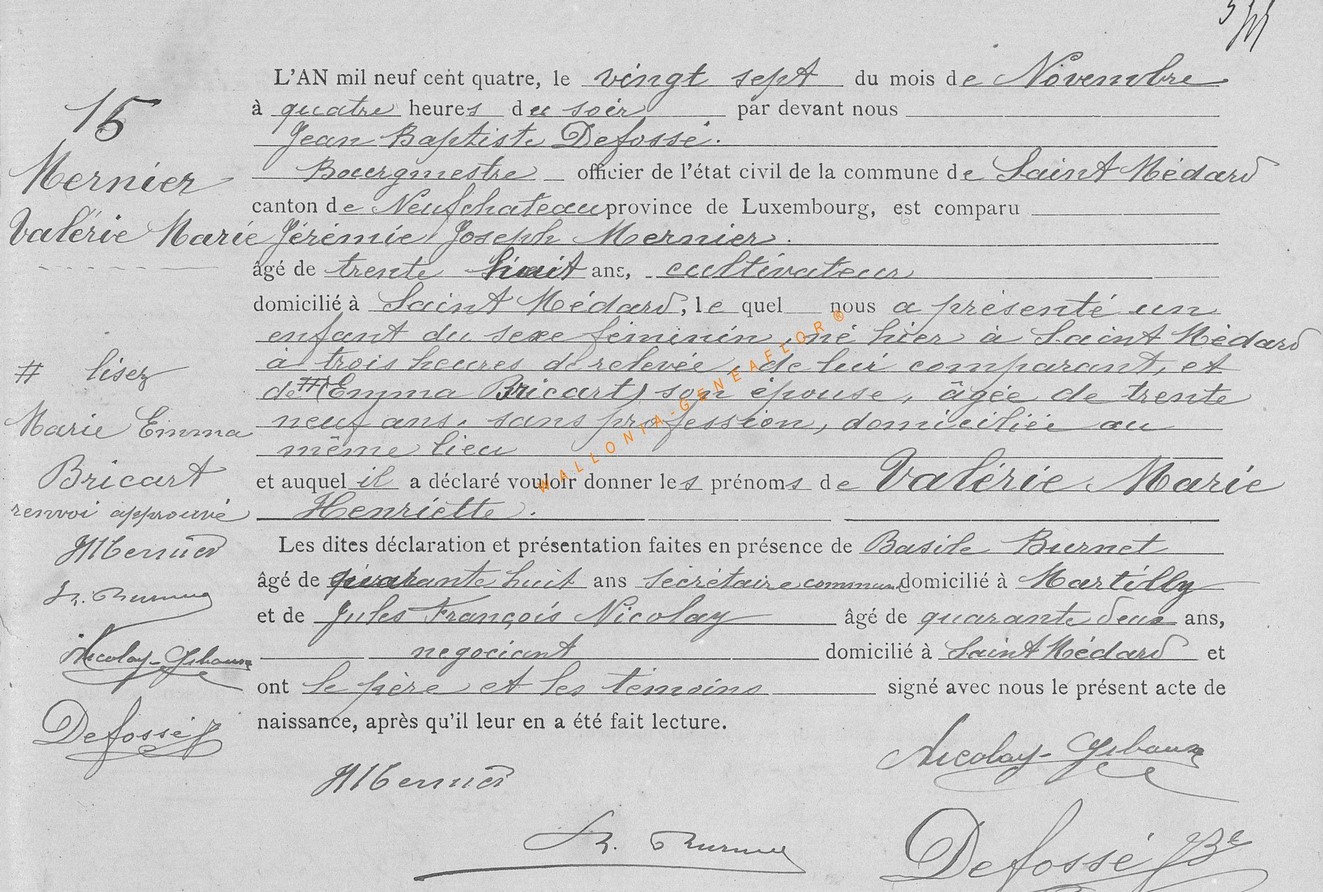 15
Mernier
Valérie Marie
# lisez
Marie Emma
Bricart
renvoi approuvé
JMernier
Nicolay-Gibaux
Defossé
L'AN mil neuf cent quatre, le vingt sept du mois de Novembre
à quatre heures du soir par devant nous
Jean Baptiste Defossé.
Bourgmestre officier de l'état civil de la commune de Saint Médard
canton de Neufchateau province de Luxembourg, est comparu
Jérémie Joseph Mernier.
âgé de trente huit ans, cultivateur
domicilié à Saint Médard, le quel nous a présenté un
enfant du sexe féminin, né hier à Saint Médard
à trois heures de relevée, de lui comparant, et
de # (Emma Bricart) son épouse, âgée de trente
neuf ans, sans profession, domiciliée au
même lieu
et auquel il a déclaré vouloir donner les prénoms de Valérie Marie
Henriette.
Les dites déclaration et présentation faites en présence de Basile Burnet
âgé de quarante huit ans secrétaire communal domicilié à Martilly
et de Jules François Nicolay âgé de quarante deux ans,
negociant domicilié à Saint Médard et
ont le père et les témoins signé avec nous le présent acte de
naissance, après qu'il leur en a été fait lecture.
Nicolay-Gibaux
JMernier
Defossé
WALLONIA-GENEAFLOR ®